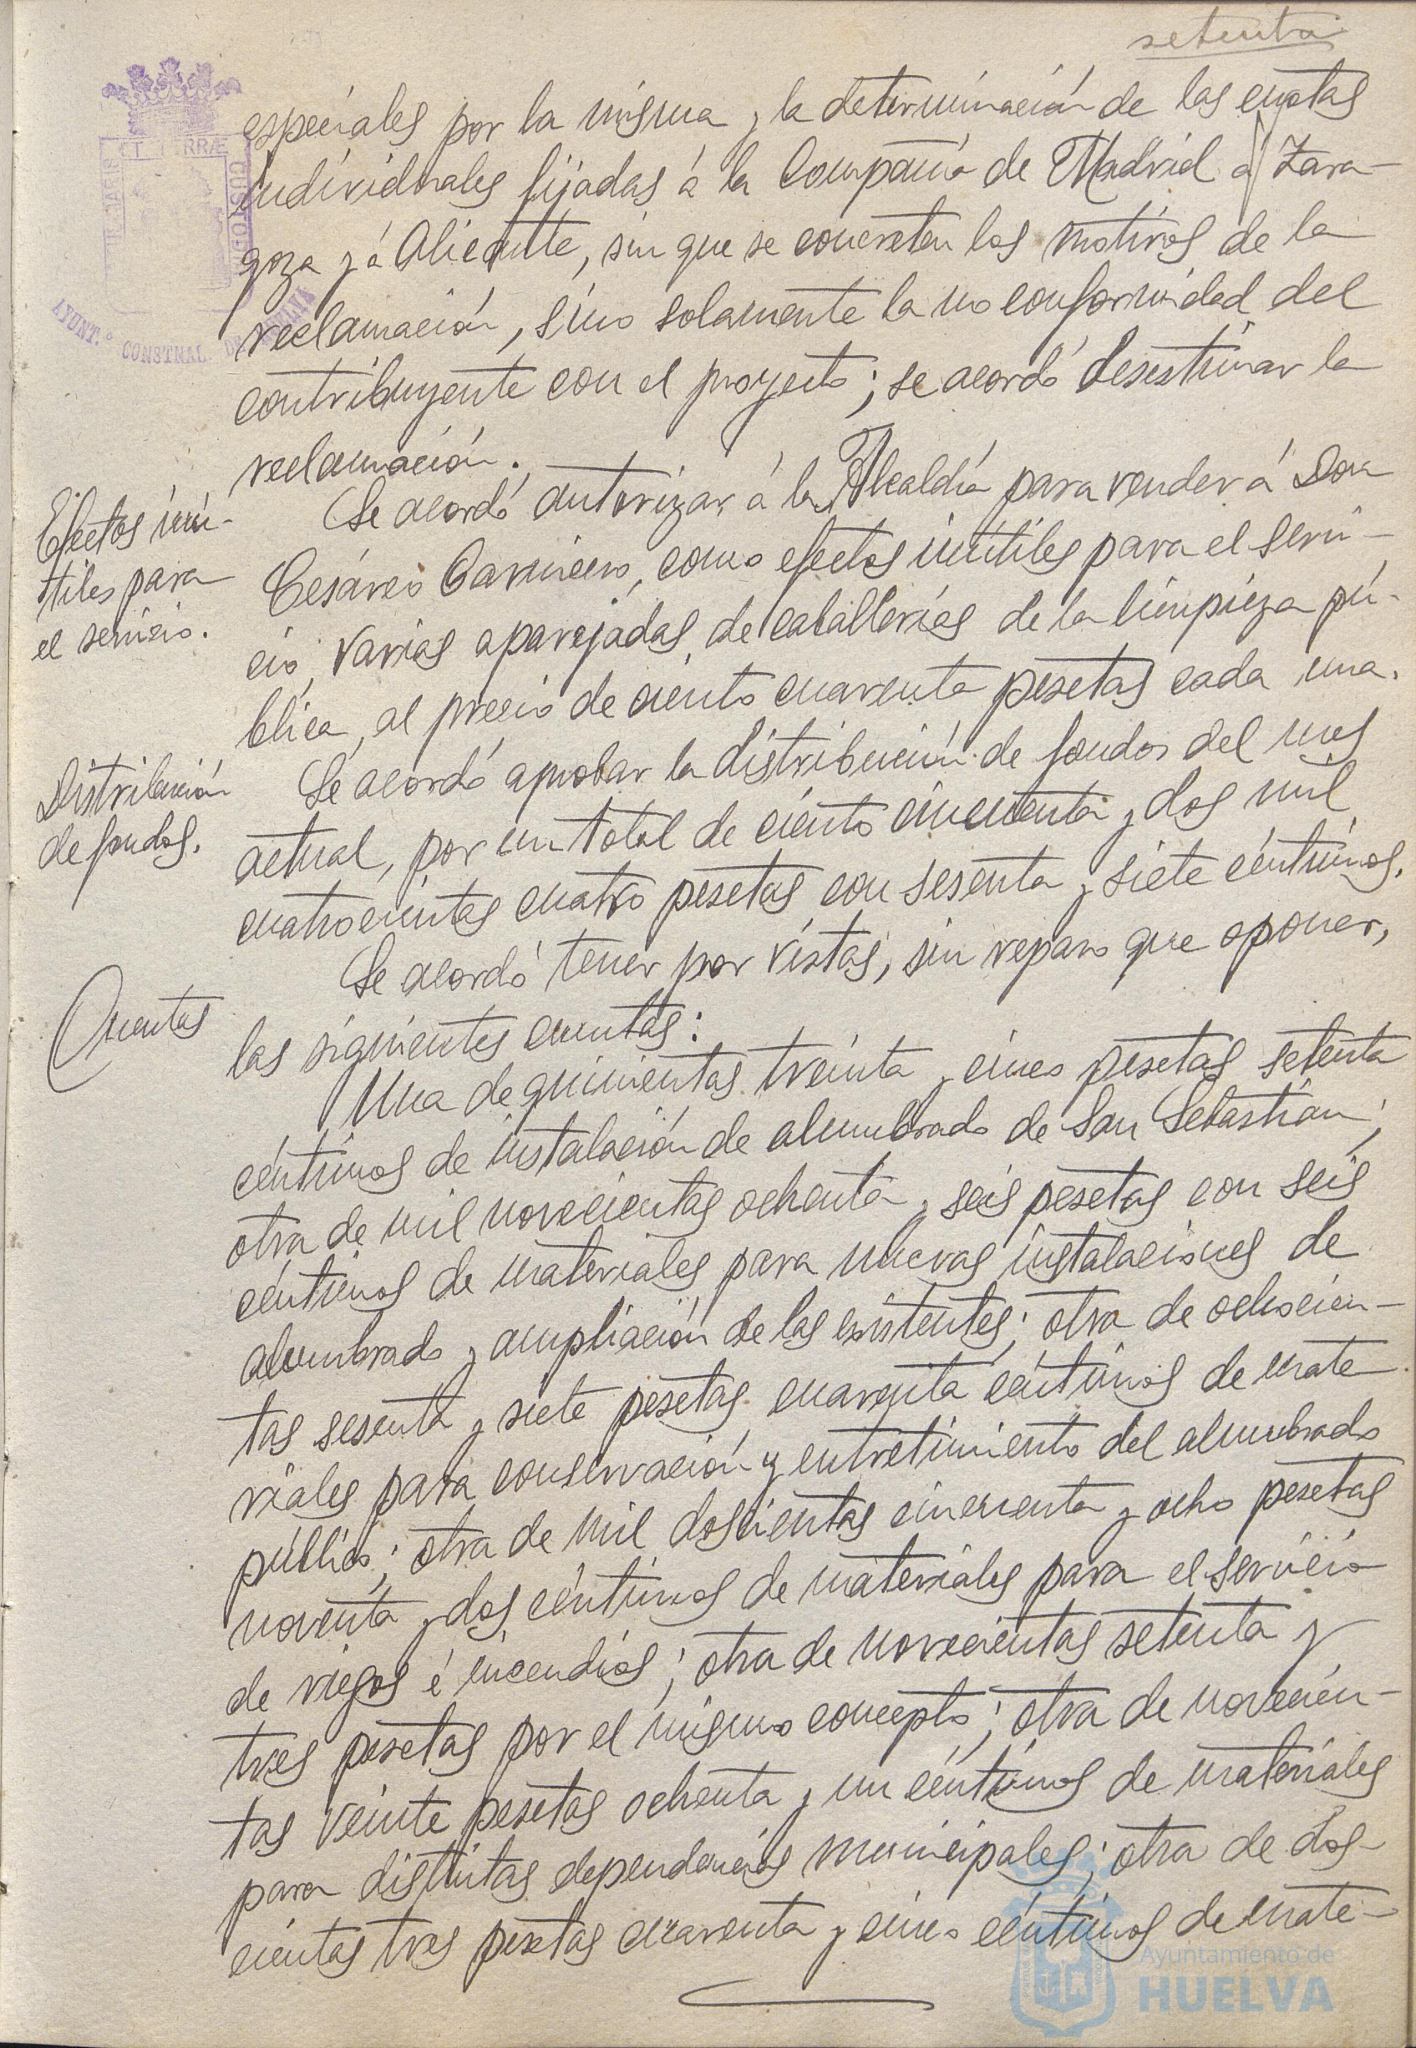 setenta
especiales por la misma y la determinación de las cuotas
individuales fijadas á la Compañía de Madrid á Zara-
goza y á Alicante, sin que se concreten los motivos de la
reclamación, sino solamente la no conformidad del
contribuyente con el proyecto; se acordó desestimar la
reclamación.
Efectos inú-
tiles para
el servicio.
Se acordó autorizar á la Alcaldía para vender á Don
Cesáreo Carnicero, como efectos inútiles para el servi-
cio, varias aparejadas de caballerías de la limpieza pú-
blica, al precio de ciento cuarenta pesetas cada una.
Distribución
de fondos.
Se acordó aprobar la distribución de fondos del mes
actual, por un total de ciento cincuenta y dos mil
cuatrocientas cuatro pesetas con sesenta y siete céntimos.
Cuentas
Se acordó tener por vistas, sin reparo que oponer,
las siguientes cuentas:
Una de quinientas treinta y cinco pesetas setenta
céntimos de instalación de alumbrado de San Sebastián;
otra de mil novecientas ochenta y seis pesetas con seis
céntimos de materiales para nuevas instalaciones de
alumbrado y ampliación de las existentes; otra de ochocien-
tas sesenta y siete pesetas cuarenta céntimos de mate
riales para conservación y entretimiento del alumbrado
público; otra de mil doscientas cincuenta y ocho pesetas
noventa y dos céntimos de materiales para el servicio
de riegos é incendios; otra de novecientas setenta y
tres pesetas por el mismo concepto; otra de novecien-
tas veinte pesetas ochenta y un céntimos de materiales
para distintas dependencias municipales; otra de dos-
cientas tres pesetas cuarenta y cinco céntimos de mate-
AYUNT.º CONSTNAL. DE HUELVA
PORTUS MARIS ET TERRÆ CUSTODIA
Ayuntamiento de
HUELVA